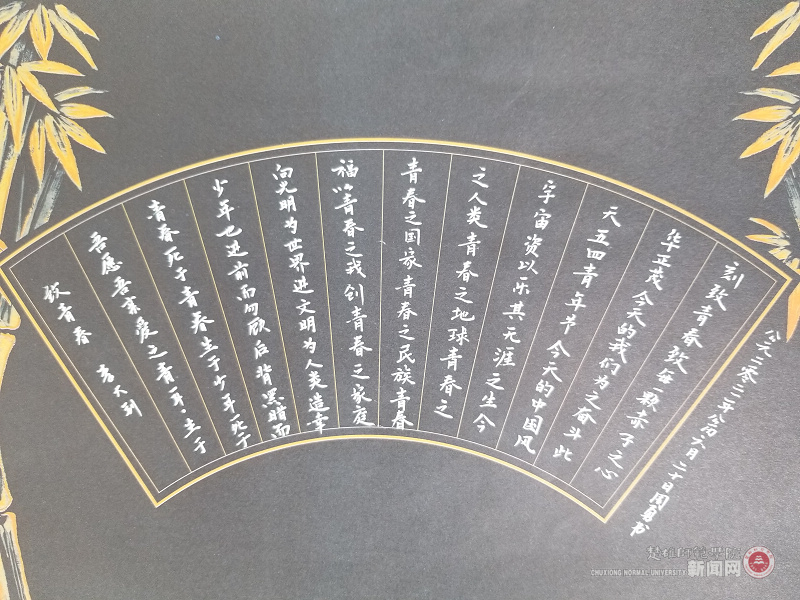 致青春 李大钊
吾愿吾亲爱之青年·生于
青春死于青春生于少年死于
少年也进前而勿顾后背黑暗而
向光明为世界进文明为人类造幸
福以青春之我创青春之家庭
青春之国家青春之民族青春
之人类青春之地球青春之
宇宙资以乐其无涯之生今
天五四青年节今天的中国风
华正茂今天的我们为之奋斗此
刻致青春致每一颗赤子之心
公元二零二二年公历六月二十日周勇书
楚雄师范学院
CHUXIONG NORMAL UNIVERSITY 新闻网